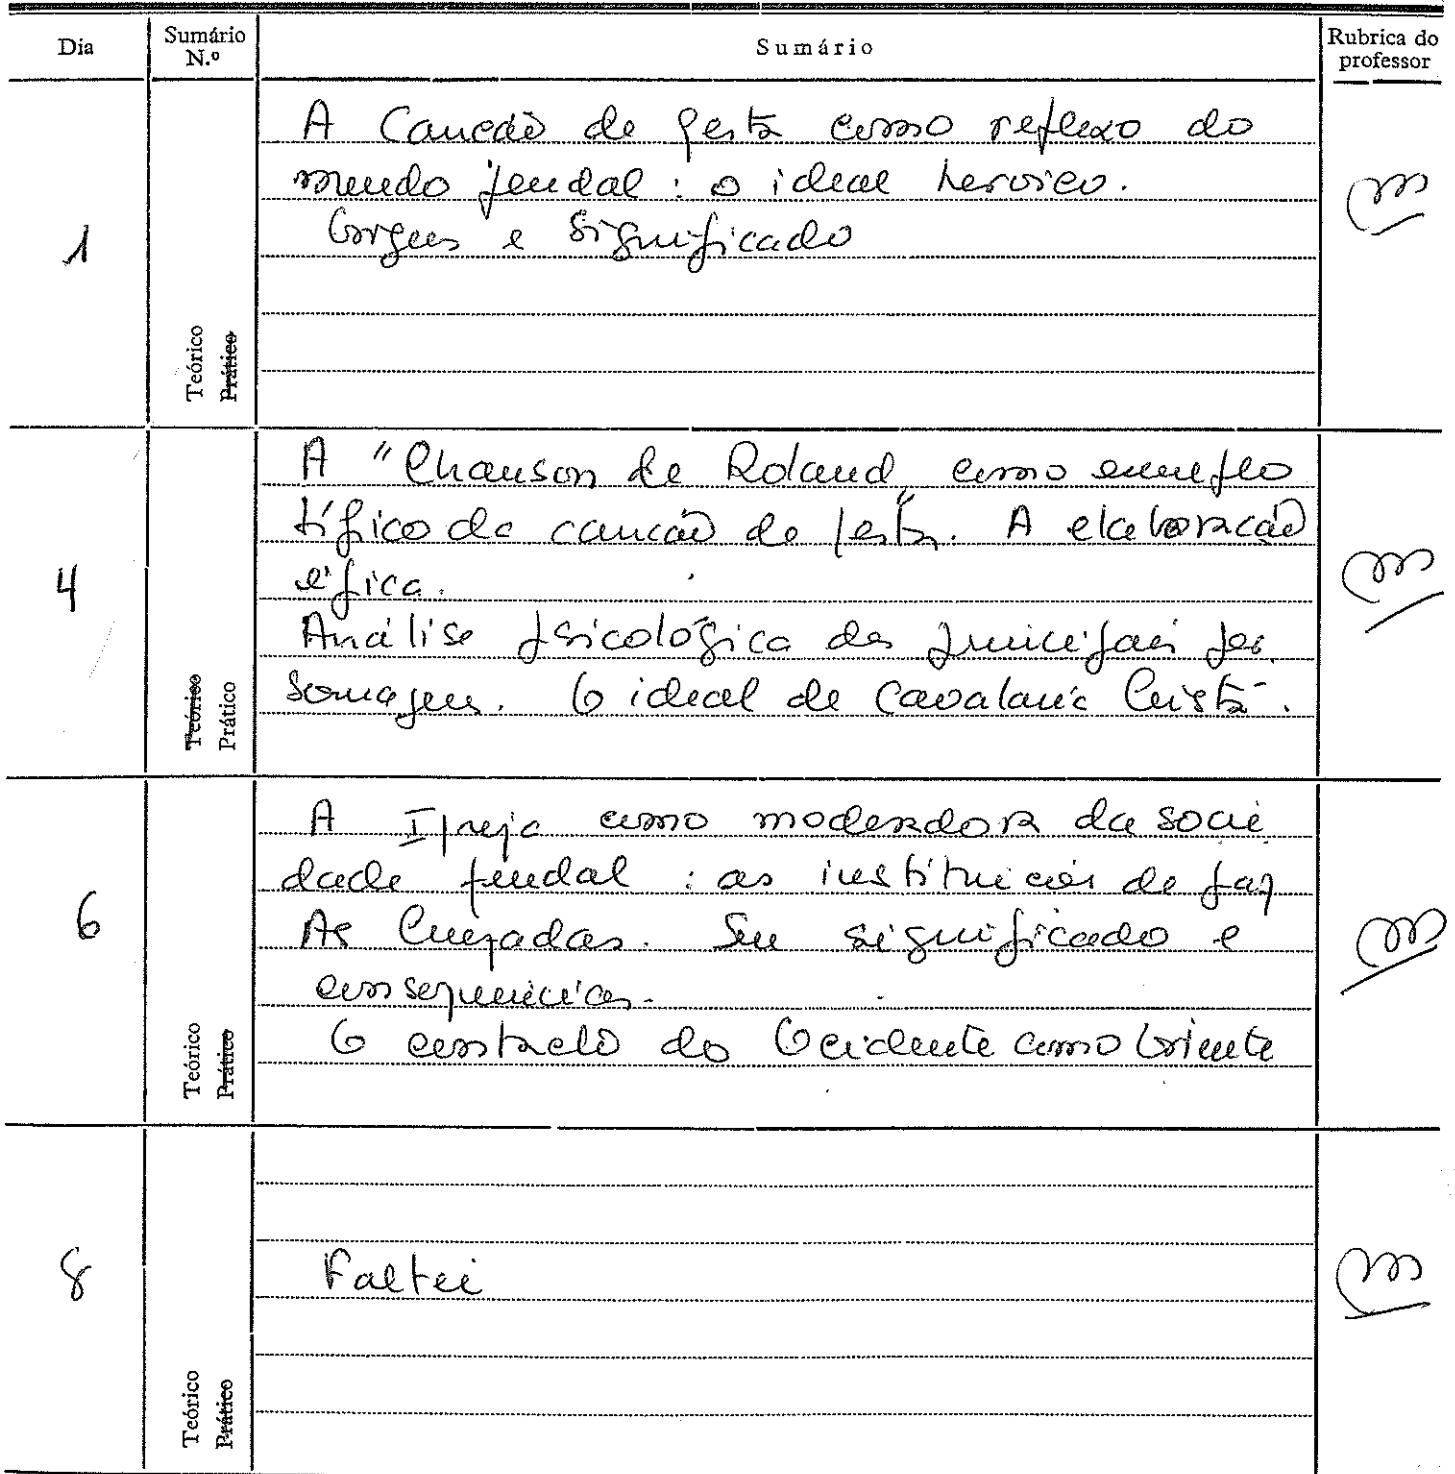 Dia Sumário N.º Sumário Rubrica do professor
A Canção de gesta como reflexo do
mundo feudal: o ideal heroico.
Origens e significado
1
Teórico
Prático
A "Chanson de Roland" como exemplo
típico da canção de gesta. A elaboração
épica.
4
Análise psicológica das principais per
sonagens. O ideal de Cavalaria Cristã.
Teórico
Prático
A Igreja como moderadora da socie
dade feudal: as instituições de paz
6
As Cruzadas. Seu significado e
consequências.
O contacto do Ocidente com o Oriente
Teórico
Prático
8
Faltei
Teórico
Prático